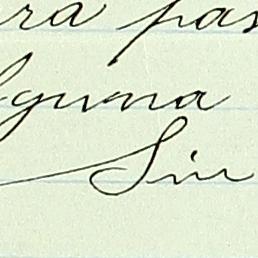 ra pas
lguna
Sin